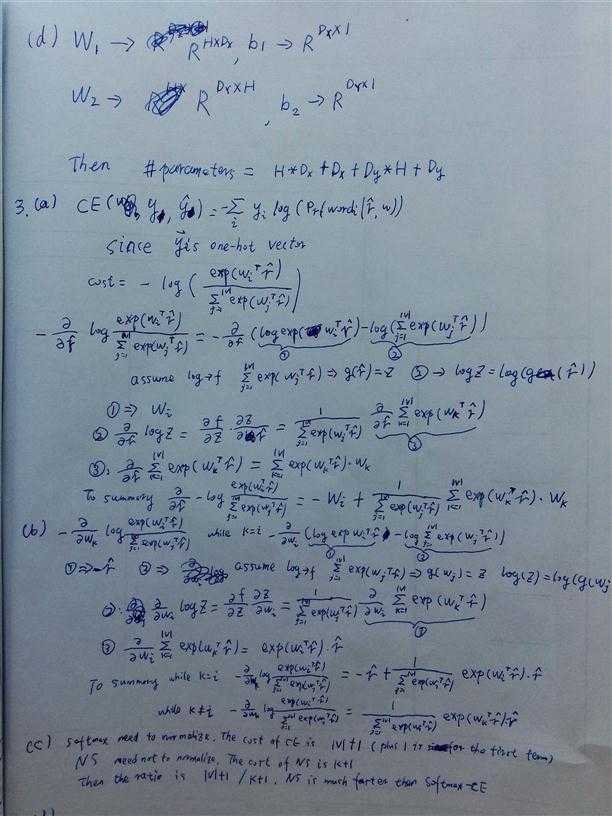 (d) W₁ → R^{H×Dx}, b₁ → R^{Dx×1}
W₂ → R^{Dy×H}, b₂ → R^{Dy×1}
Then #parameters = H*Dx + Dx + Dy*H + Dy
3. (a) CE(w, y, ŷ) = -∑_i y_i log(Pr(word i | r̂, w))
since y⃗ is one-hot vector
cost = -log( exp(w_i^T r̂) / ∑_{j=1}^{|V|} exp(w_j^T r̂) )
-∂/∂r̂ log exp(w_i^T r̂) / ∑_{j=1}^{|V|} exp(w_j^T r̂) = -∂/∂r̂ (log exp(w_i^T r̂) - log(∑_{j=1}^{|V|} exp(w_j^T r̂)))
① ②
assume log→f ∑_{j=1}^{|V|} exp(w_j^T r̂) ⇒ g(r̂) = z ② → log z = log(g(r̂))
① ⇒ w_i
② ∂/∂r̂ log z = ∂f/∂z ∂z/∂r̂ = 1 / ∑_{j=1}^{|V|} exp(w_j^T r̂) ∂/∂r̂ ∑_{k=1}^{|V|} exp(w_k^T r̂)
③
③: ∂/∂r̂ ∑_{k=1}^{|V|} exp(w_k^T r̂) = ∑_{k=1}^{|V|} exp(w_k^T r̂)·w_k
To summary ∂/∂r̂ -log exp(w_i^T r̂) / ∑_{j=1}^{|V|} exp(w_j^T r̂) = -w_i + 1 / ∑_{j=1}^{|V|} exp(w_j^T r̂) ∑_{k=1}^{|V|} exp(w_k^T r̂)·w_k
(b) -∂/∂w_k log exp(w_i^T r̂) / ∑_{j=1}^{|V|} exp(w_j^T r̂) while k=i -∂/∂w_i (log exp w_i^T r̂ - log ∑_{j=1}^{|V|} exp(w_j^T r̂))
① ②
① ⇒ -r̂ ⇒ assume log→f ∑_{j=1}^{|V|} exp(w_j^T r̂) ⇒ g(w_j) = z log(z) = log(g(w_j
②: ∂/∂w_i log z = ∂f/∂z ∂z/∂w_i = 1 / ∑_{j=1}^{|V|} exp(w_j^T r̂) ∂/∂w_i ∑_{k=1}^{|V|} exp(w_k^T r̂)
③ ∂/∂w_i ∑_{k=1}^{|V|} exp(w_k^T r̂) = exp(w_i^T r̂)·r̂
To summary while k=i -∂/∂w_i log exp(w_i^T r̂) / ∑_{j=1}^{|V|} exp(w_j^T r̂) = -r̂ + 1 / ∑_{j=1}^{|V|} exp(w_j^T r̂) exp(w_i^T r̂)·r̂
while k≠i -∂/∂w_k log exp(w_i^T r̂) / ∑_{j=1}^{|V|} exp(w_j^T r̂) = 1 / ∑_{j=1}^{|V|} exp(w_j^T r̂) exp(w_k^T r̂)·r̂
(c) softmax need to normalize. The cost of CE is |V|+1 (plus 1 is for the first term)
NS need not to normalize. The cost of NS is k+1
Then the ratio is |V|+1 / k+1. NS is much faster than softmax-CE